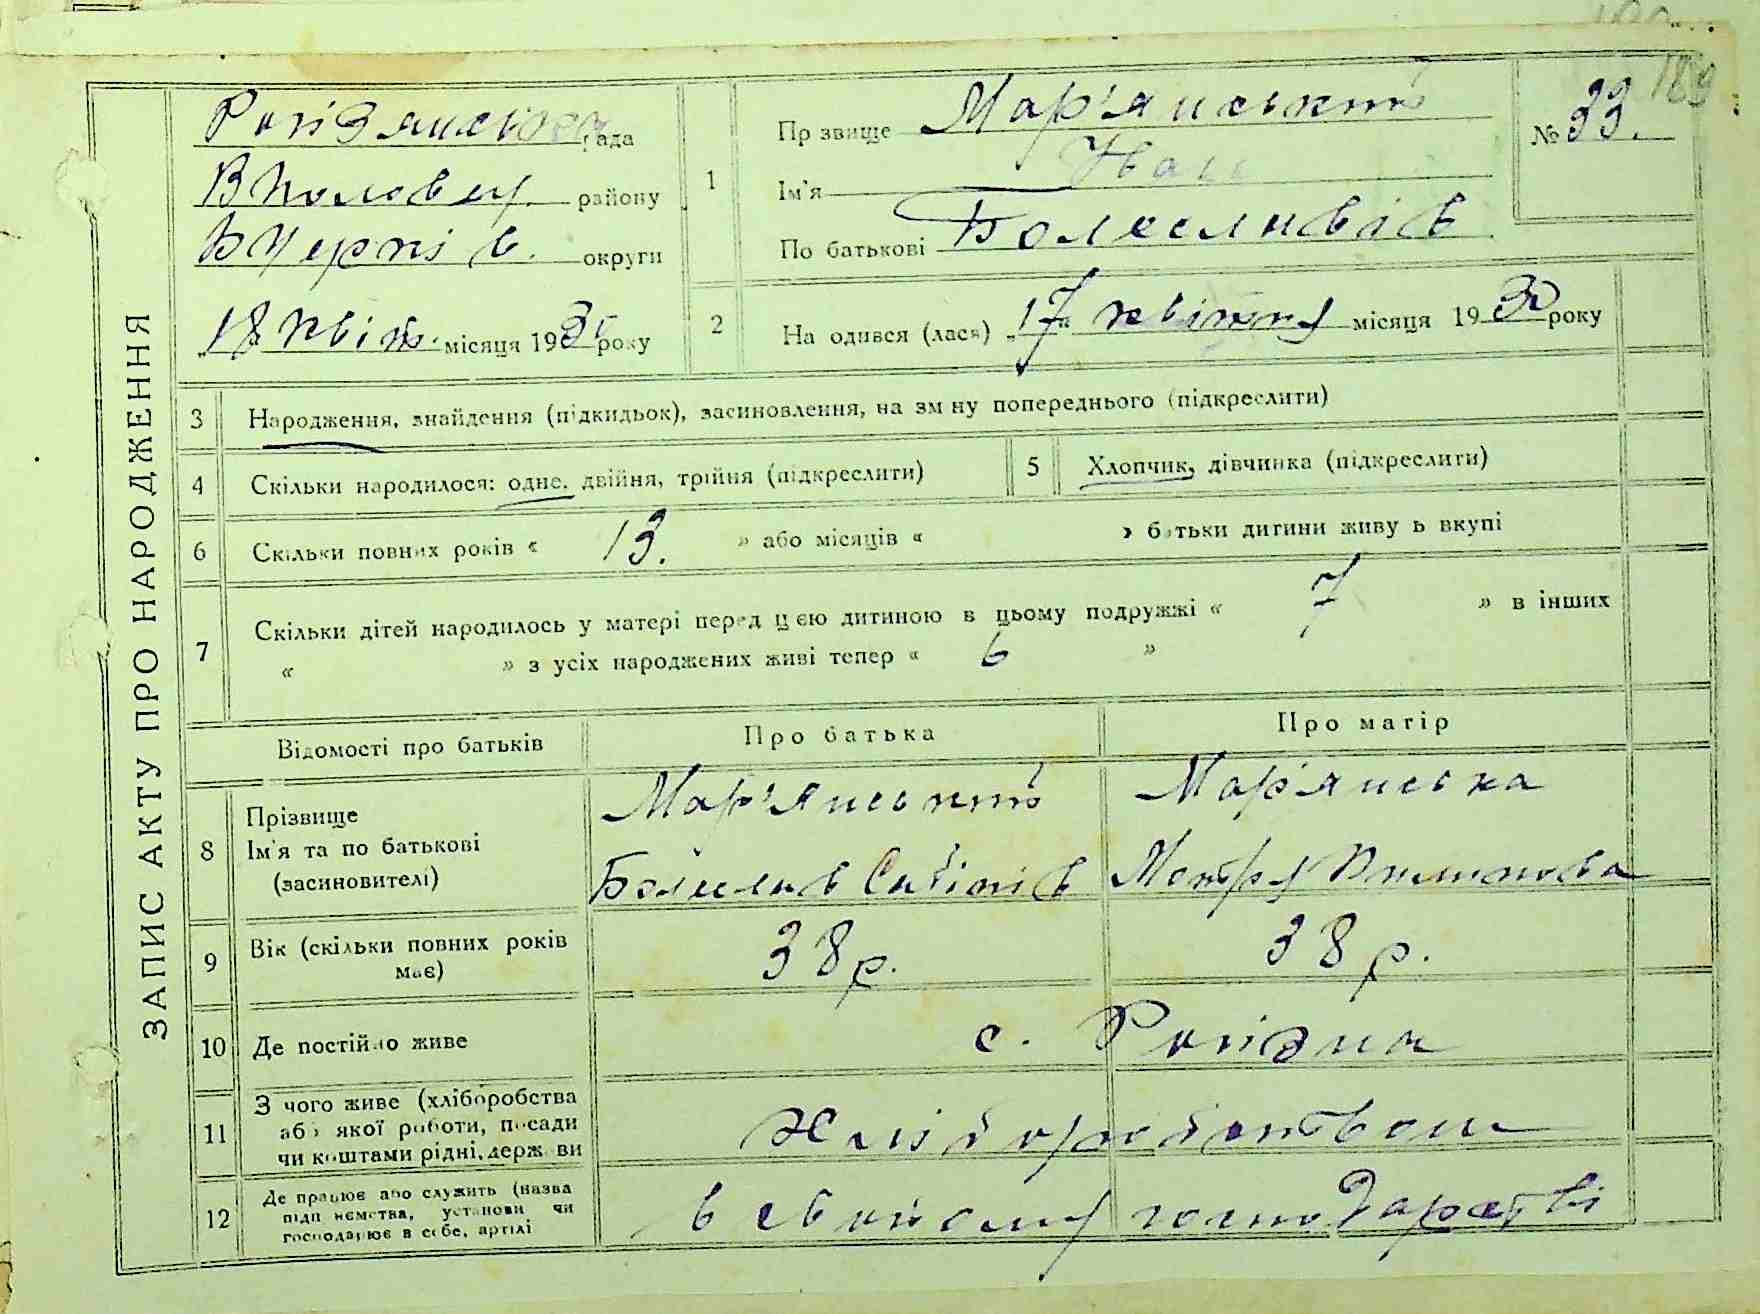 189
ЗАПИС АКТУ ПРО НАРОДЖЕННЯ
рада
В Половец. району
БЧерків. округи
„18 квіт. місяця 1930 року
1
Прзвище Мар'янський
Ім'я Іван
По батькові Болеславів
№ 33.
2
На одився (лася) „17“ квітня місяця 1930 року
3 Народження, знайдення (підкидьок), засиновлення, на зм ну попереднього (підкреслити)
4 Скільки народилося: одне, двійня, трійня (підкреслити)
5 Хлопчик, дівчинка (підкреслити)
6 Скільки повних років « 13. » або місяців « » батьки дитини живу ь вкупі
7 Скільки дітей народилось у матері перед цією дитиною в цьому подружжі « 7 » в інших
« » з усіх народжених живі тепер « 6 »
Відомості про батьків Про батька Про матір
8 Прізвище
Ім'я та по батькові
(засиновителі)
Мар'янський
Болеслав
Мар'янська
Мотря
9 Вік (скільки повних років
має)
38 р. 38 р.
10 Де постійно живе с. Рогізна
11 З чого живе (хліборобства
або якої роботи, посади
чи коштами рідні, держ ви
Хліборобством
12 Де працює або служить (назва
підп иємства, установи чи
господарює в себе, артілі
в свойому господарстві